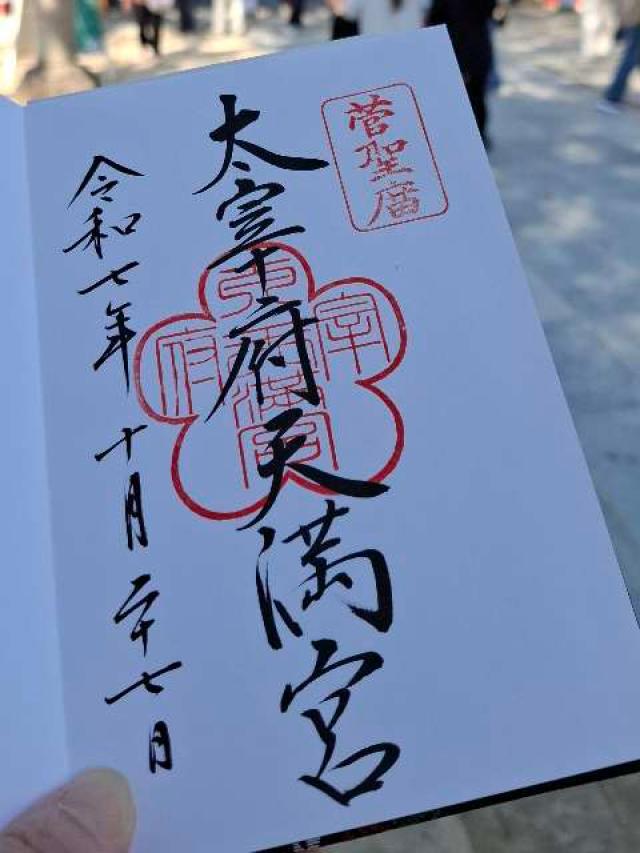 菅聖廟
太宰府天満宮
令和七年 十月 二十七日